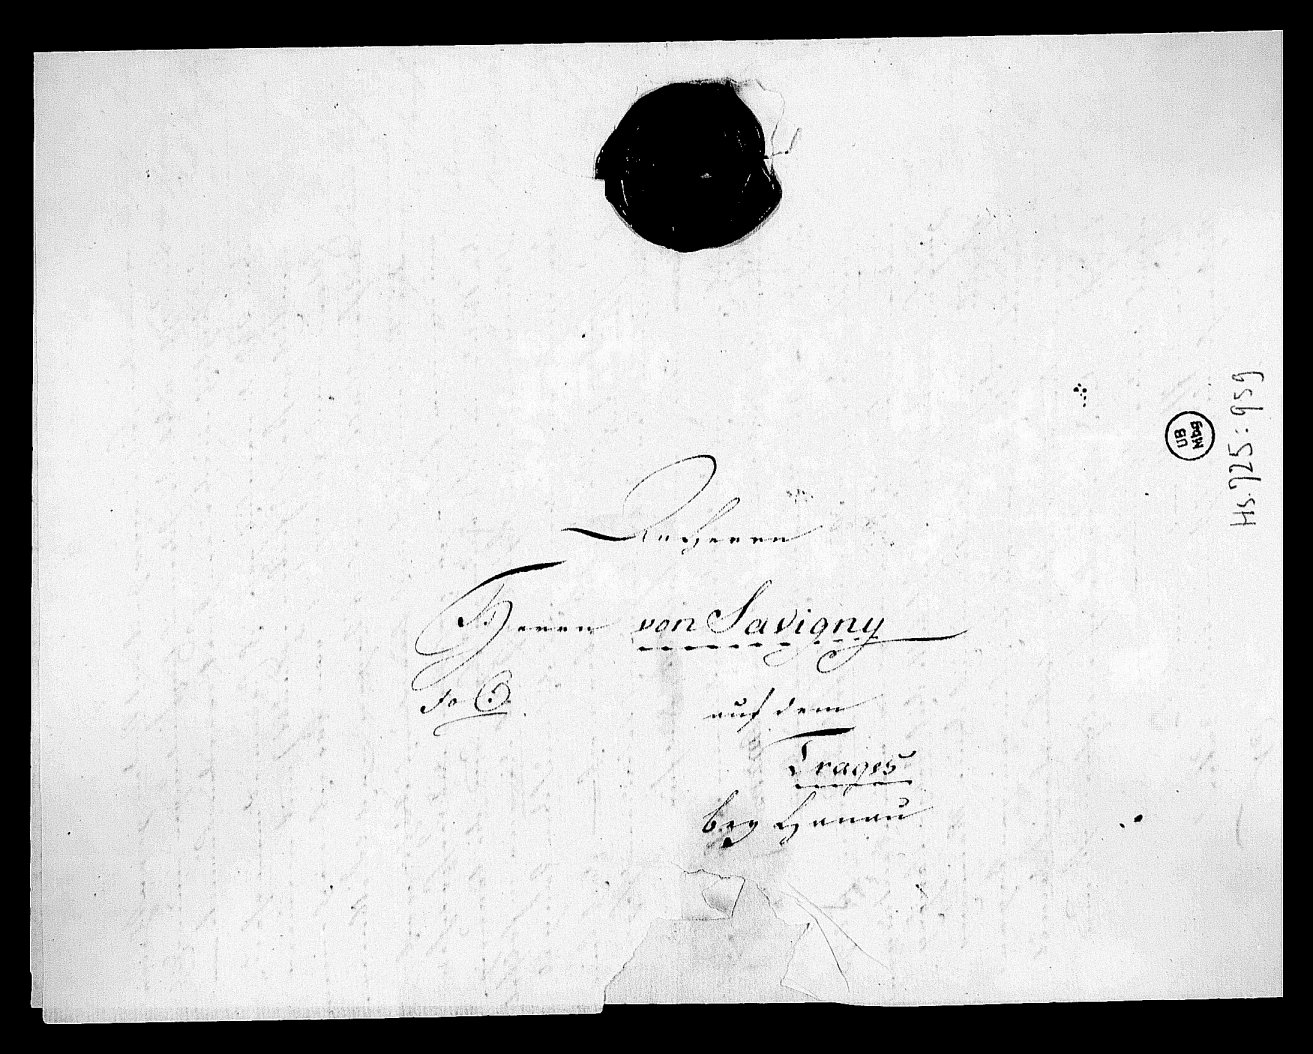 An Herrn
Herrn von Savigny
auf dem
Trages
bey Hanau
UB
Mbg
Hs. 725: 959